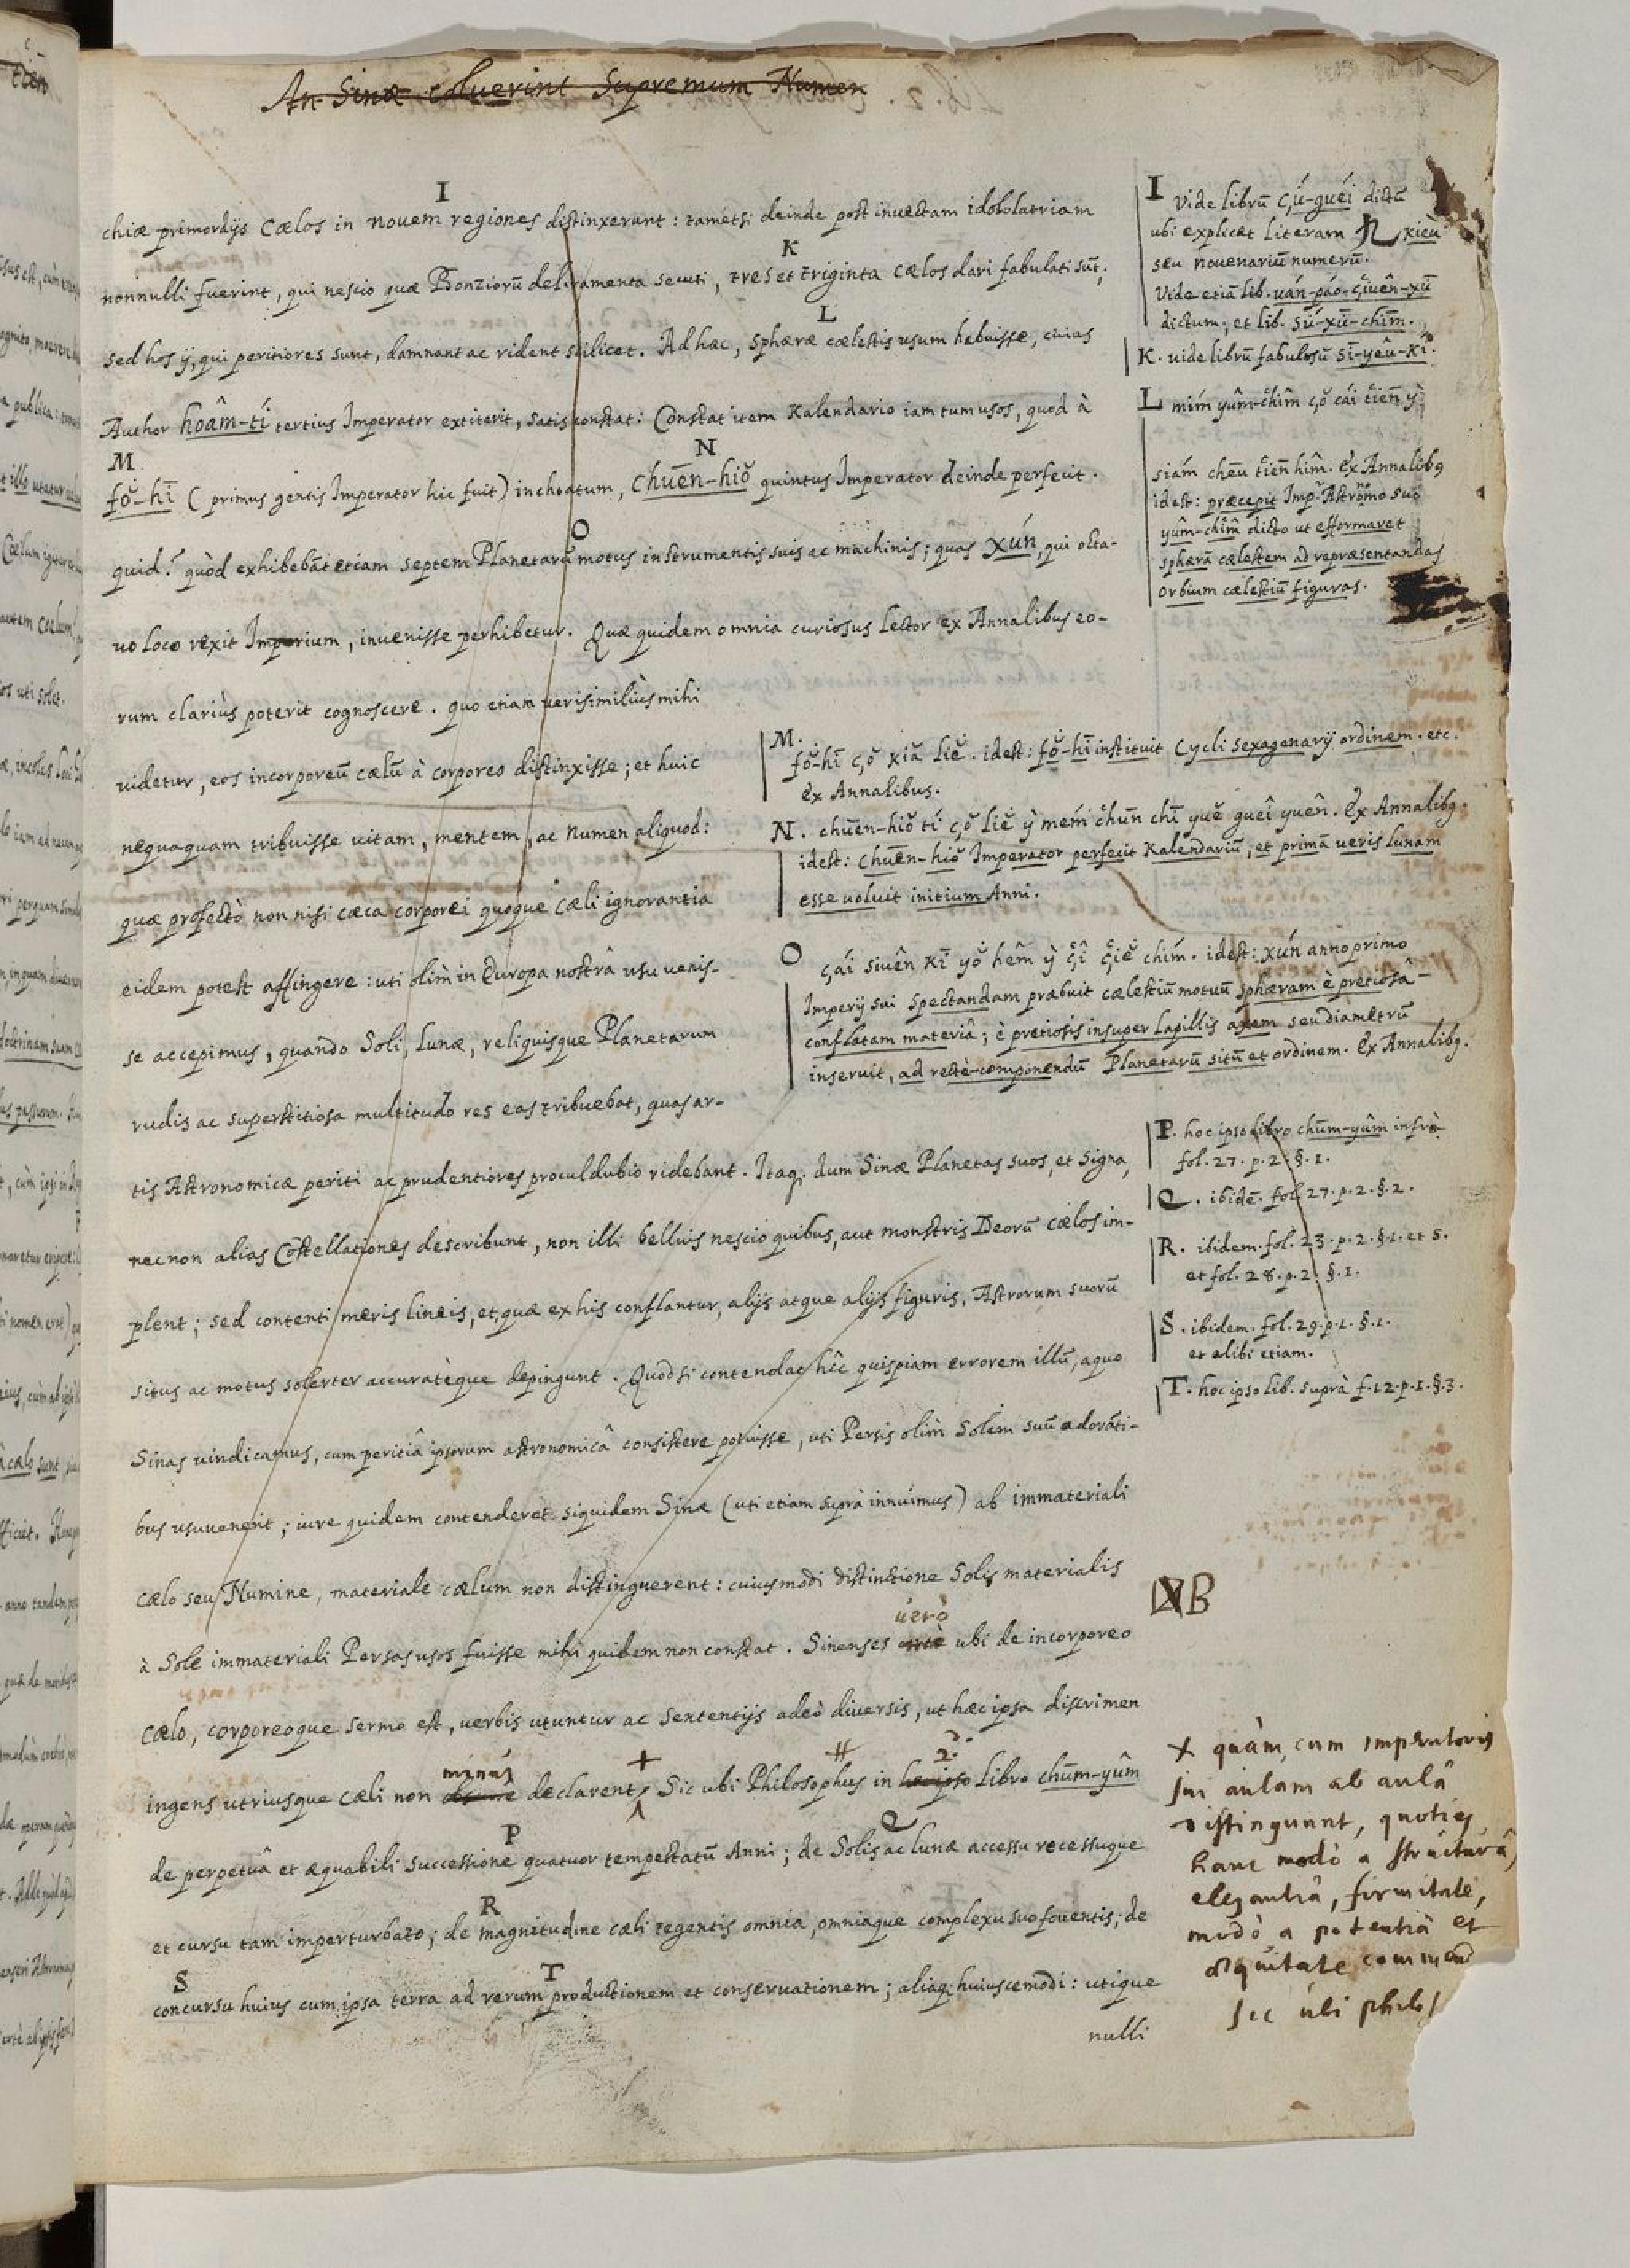 An Sinæ coluerint Supremum Numen
I
chiæ primordijs Cœlos in novem regiones distinxerunt: tametsi deinde post invectam idololatriam
K
nonnulli fuerint, qui nescio quæ Bonziorū deliramenta secuti, tres et triginta Cœlos dari fabulati sūt;
L
sed hos ij, qui peritiores sunt, damnant ac rident scilicet. Ad hæc, sphæræ cælestis usum habuisse, cuius
Author hoâm-tí tertius Imperator extiterit, satis constat: Constat item Kalendario iam tum usos, quod à
M. N
fŏ-hī (primus gentis Imperator hic fuit) inchoatum, Chuēn-hiŏ quintus Imperator deinde perfecit.
O
quid? quòd exhibebāt etiam septem Planetarū motus instrumentis suis ac machinis; quas Xún, qui octa-
uo loco rexit Imperium, invenisse perhibetur. Quæ quidem omnia curiosus Lector ex Annalibus eo-
rum clariùs poterit cognoscere. quo etiam verisimiliùs mihi
videtur, eos incorporeū cælū à corporeo distinxisse; et huic
nequaquam tribuisse vitam, mentem, ac Numen aliquod:
quæ profectò non nisi cæca corporei quoque Cæli ignorantia
eidem potest affingere: uti olim in Europa nostrâ usu venis-
se accepimus, quando Soli, Lunæ, reliquisque Planetarum
rudis ac superstitiosa multitudo res eas tribuebat, quas ar-
tis Astronomicæ periti ac prudentiores proculdubio ridebant. Itaq; dum Sinæ Planetas suos, et Signa,
necnon alias Cōstellationes describunt, non illi belluis nescio quibus, aut monstris Deorū Cælos im-
plent; sed contenti meris lineis, et, quæ ex his conflantur, alijs atque alijs figuris, Astrorum suorū
situs ac motus solerter accuratèque depingunt. Quòd si contendat hîc quispiam errorem illū, a quo
Sinas vindicamus, cum peritiâ ipsorum astronomicâ consistere potuisse, uti Persis olim Solem suū adorāti-
bus usuvenerit; iure quidem contenderet siquidem Sinæ (uti etiam suprà innuimus) ab immateriali
Cælo seu Numine, materiale cælum non distinguerent: cuiusmodi distinctione Solis materialis
uerò
à Sole immateriali Persas usos fuisse mihi quidem non constat. Sinenses certè ubi de incorporeo
Cælo, corporeoque sermo est, verbis utuntur ac Sententijs adeò diversis, ut hæc ipsa discrimen
minus + # 2.
ingens utriusque Cæli non obscurè declarent, Sic ubi Philosophus in hoc ipso Libro chūm-yûm
P Q
de perpetuâ et æquabili successione quatuor tempestatū Anni; de Solis ac Lunæ accessu recessuque
R
et cursu tam imperturbato; de magnitudine cæli tegentis omnia, omniaque complexu suo foventis; de
S T
concursu huius cum ipsa terra ad rerum productionem et conservationem; aliaq; huiuscemodi: utique
nulli
I Vide librū çú-guéi dictū
ubi explicat Literam kièu
seu novenariū numerū.
Vide etiā Lib. uán-páo-çiuên-xū
dictum, et lib. sú-xū-chīm.
K. vide librū fabulosū sī-yêu-kí.
L mím yûm-chîm çŏ cái tiēn ỳ
siám chēu tiēn hîm. Ex Annalibȝ
idest: præcepit Impr. Astronomo suo
yûm-chîm dicto ut efformaret
sphærā cælestem ad repræsentandas
orbium cælestiū figuras.
M.
fŏ-hī çŏ kiă liĕ. idest: fŏ-hī instituit Cycli sexagenarij ordinem. etc.
Ex Annalibus.
N. chuēn-hiŏ tí çŏ liĕ ỳ mém chūn chī yuĕ guêi yuên. Ex Annalibȝ.
idest: Chuēn-hiŏ Imperator perfecit Kalendariū, et primā veris Lunam
esse voluit initium Anni.
O çái siuên kī yŏ hêm ỳ çî çiĕ chím. idest: Xún anno primo
Imperij sui spectandam præbuit cælestiū motuū sphæram è pretiosâ
conflatam materiâ; è pretiosis insuper Lapillis axem seu diametrū
inseruit, ad rectè componendū Planetarū sitū et ordinem. Ex Annalibȝ.
P. hoc ipso libro chūm-yûm infrà
fol. 27. p. 2. §. 1.
Q. ibidē. fol. 27. p. 2. §. 2.
R. ibidem. fol. 23. p. 2. §. 1. et 5.
et fol. 28. p. 2. §. 1.
S. ibidem. fol. 29. p. 1. §. 1.
et alibi etiam.
T. hoc ipso lib. suprà f. 12. p. 1. §. 3.
B
+ quàm, cum imperatoris
sui aulam ab aulâ
distinguunt, quoties
hanc modò a structurâ,
elegantiâ, firmitate,
modò a potentiâ et
æquitate commend
sic ubi philos